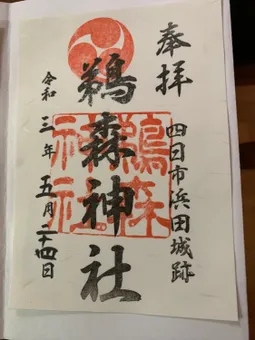 奉拝
四日市浜田城跡
鵜森神社
令和三年五月二十四日
鵜森神社